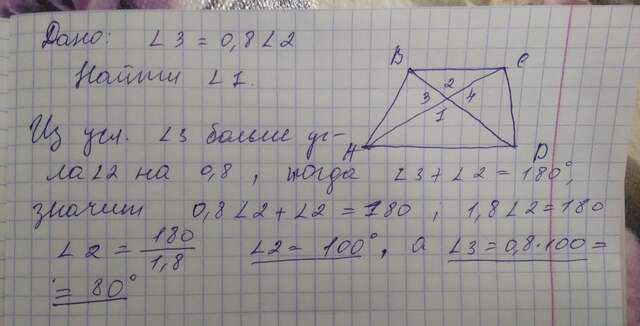 Дано: ∠3 = 0,8∠2
Найти ∠1.
B
C
2
3
4
1
A
D
Из усл. ∠3 больше уг-
ла∠2 на 0,8, тогда ∠3+∠2 = 180°,
значит 0,8∠2+∠2 = 180 ; 1,8∠2=180
∠2 = 180/1,8 ∠2 = 100°, а ∠3=0,8·100=
= 80°